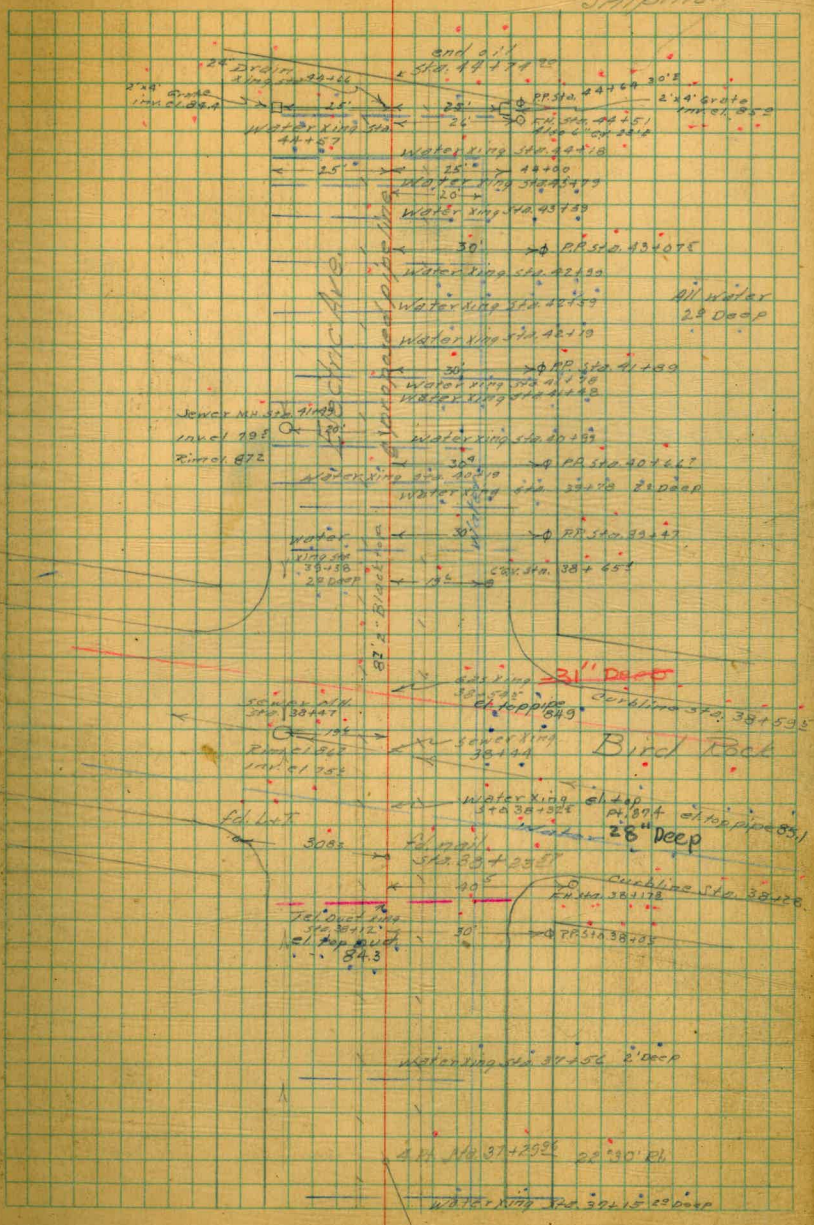 end oil
Sta. 44+74
24" Drain
Xing Sta 44+66
2'x4' Grate
inv. el. 84.4
25'
25'
P.P. Sta. 44+69 30'
2'x4' Grate
inv. el. 85
26'
F.H. Sta. 44+51
Water Xing Sta
44+67
Water Xing Sta. 44+18
25'
25'
44+00
Water Xing Sta. 43+79
20'
Water Xing Sta. 43+39
30'
P.P. Sta. 43+07
Water Xing Sta. 42+99
All water
2' Deep
Water Xing Sta. 42+59
Water Xing Sta. 42+19
Electric Ave.
proposed pipeline
30'
P.P. Sta. 41+89
Water Xing Sta. 41+78
Water Xing Sta.
Sewer MH Sta. 41+49
20'
inv. el 79
Rim el. 87
Water Xing Sta. 40+99
30
P.P. Sta. 40+66
Water Xing Sta. 40+19
Water Xing Sta. 39+78 2' Deep
Water
30'
P.P. Sta. 39+47
Water
Xing Sta
39+38
2' Deep
Sta. 38+65
2" Blacktop
Gas Xing
31" Deep
el. top pipe
84.9
Curbline Sta. 38+59
Sewer M.H.
Sta. 38+47
Rim el 86
inv. el 75
Sewer Xing
38+44
Bird Rock
Water Xing
Sta 38+32
el. top
pt. 87.4
el. top pipe 85.1
Water
28" Deep
fd. L+T.
30
fd. nail
40
Curbline Sta. 38+28
F.H. Sta. 38+17
Tel Duct Xing
Sta. 38+12
el. top duct
84.3
30'
P.P. Sta 38+03
Water Xing Sta. 37+56 2' Deep
Sta. 37+25 22°30' Rt.
Water Xing Sta. 37+15 2' Deep